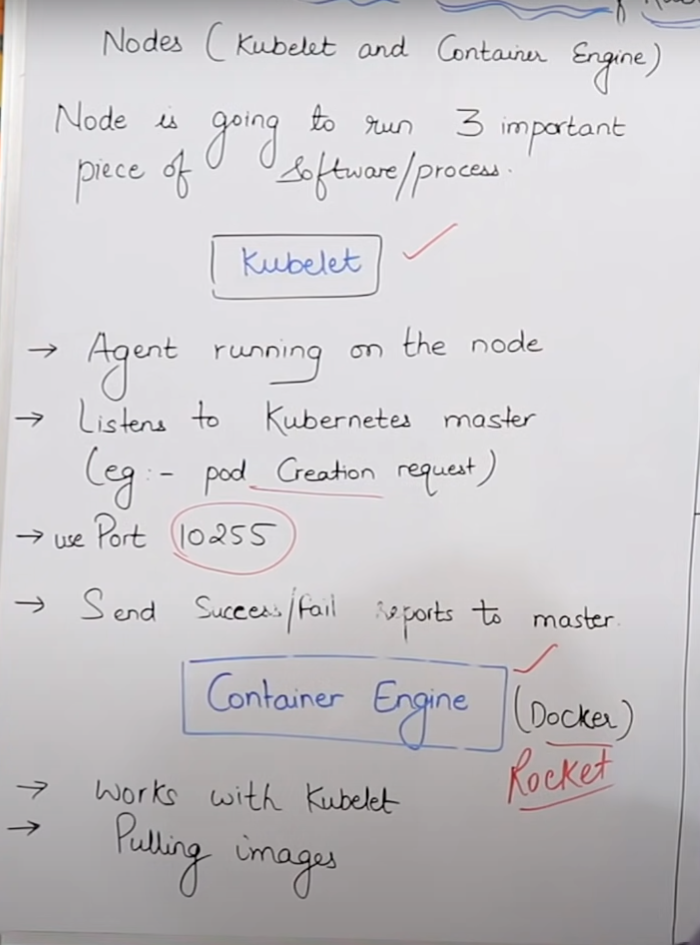 Nodes (Kubelet and Container Engine)
Node is going to run 3 important
piece of software/process.
Kubelet
→ Agent running on the node
→ Listens to Kubernetes master
(eg:- pod Creation request)
→ use Port 10255
→ Send Success/fail reports to master.
Container Engine (Docker)
Rocket
→ works with Kubelet
→ Pulling images